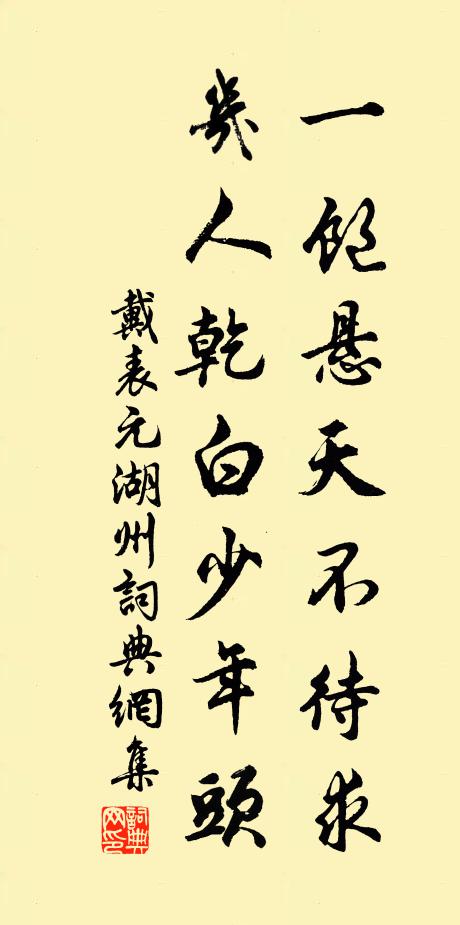 一飽懸天不待求
幾人乾白少年頭
戴表元湖州詞典網集
詞典網印